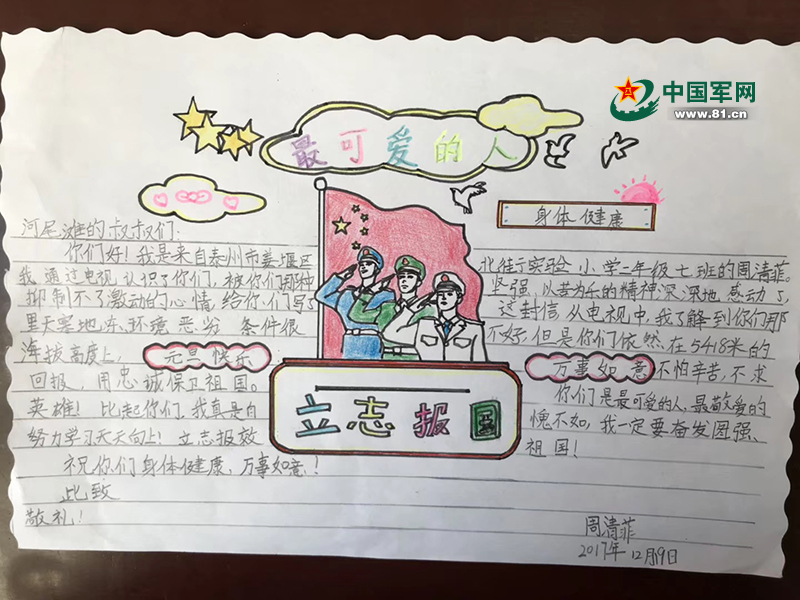 中国军网
www.81.cn
最可爱的人
身体健康
河尾滩的叔叔们：
你们好！我是来自泰州市姜堰区 北街实验小学二年级七班的周清菲。
我通过电视认识了你们，被你们那种 坚强、以苦为乐的精神深深地感动了，
抑制不了激动的心情，给你们写了 这封信。从电视中，我了解到你们那
里天寒地冻、环境恶劣 条件很 不好，但是你们依然在5418米的
海拔高度上， 元旦快乐 万事如意 不怕辛苦，不求
回报，用忠诚保卫祖国。 你们是最可爱的人，最敬爱的
英雄！比起你们，我真是自 愧不如，我一定要奋发图强、
努力学习天天向上！立志报效 祖国！
立志报国
祝你们身体健康，万事如意！
此致
敬礼！
周清菲
2017年12月19日